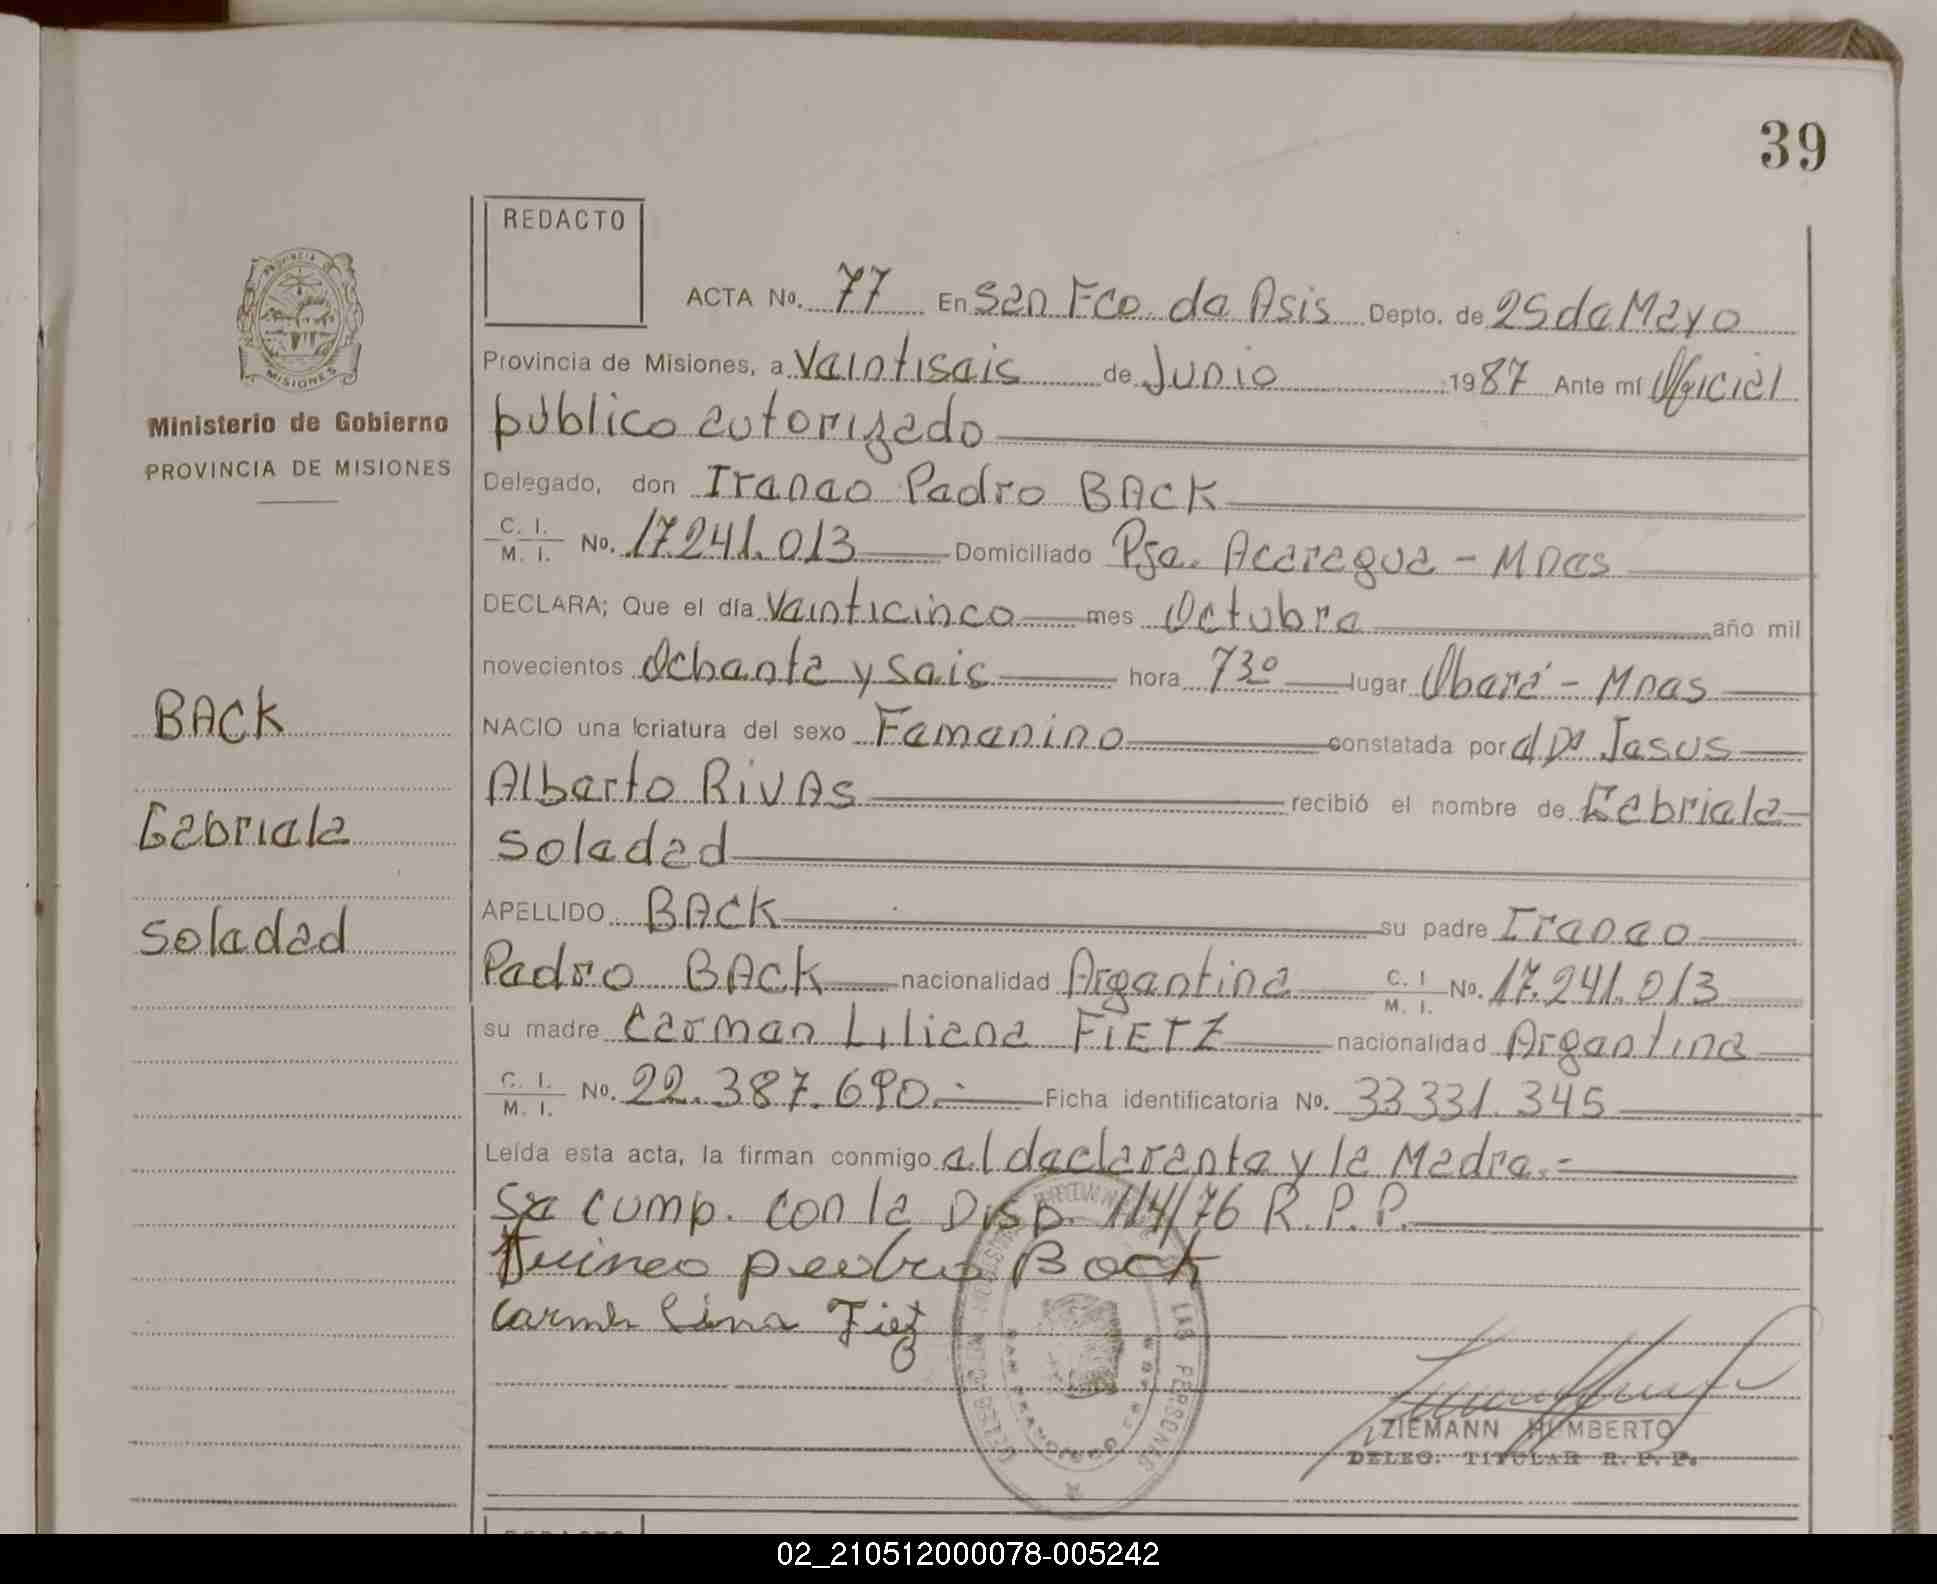 39
REDACTO
ACTA No. 77 En San Fco de Asis Depto. de 25 de Mayo
Provincia de Misiones, a Veintiseis de Junio 1987 Ante mí Oficial
público autorizado
Delegado, don Ireneo Pedro BACK
C. I.
M. I. No. 17.241.013 Domiciliado Pje. Acaragua - Mnes
DECLARA; Que el día Veinticinco mes Octubre año mil
novecientos Ochenta y seis hora 7 30 lugar Oberá - Mnes
NACIO una criatura del sexo Femenino constatada por el Dr Jesus
Alberto RIVAS recibió el nombre de Gabriela
Soledad
APELLIDO BACK su padre Ireneo
Pedro BACK nacionalidad Argentina C. I. M. I. No. 17.241.013
su madre Carmen Liliana FIETZ nacionalidad Argentina
C. I.
M. I. No. 22.387.690.- Ficha identificatoria No. 33331.345
Leída esta acta, la firman conmigo el declarante y la Madre.-
Se cump. con la Disp. 114/76 R.P.P.
pedro Back
ZIEMANN HUMBERTO
DELEG. TITULAR R. P. P.
LAS PERSONAS
MISIONES
Ministerio de Gobierno
PROVINCIA DE MISIONES
BACK
Gabriela
Soledad
REDACTO
02_210512000078-005242